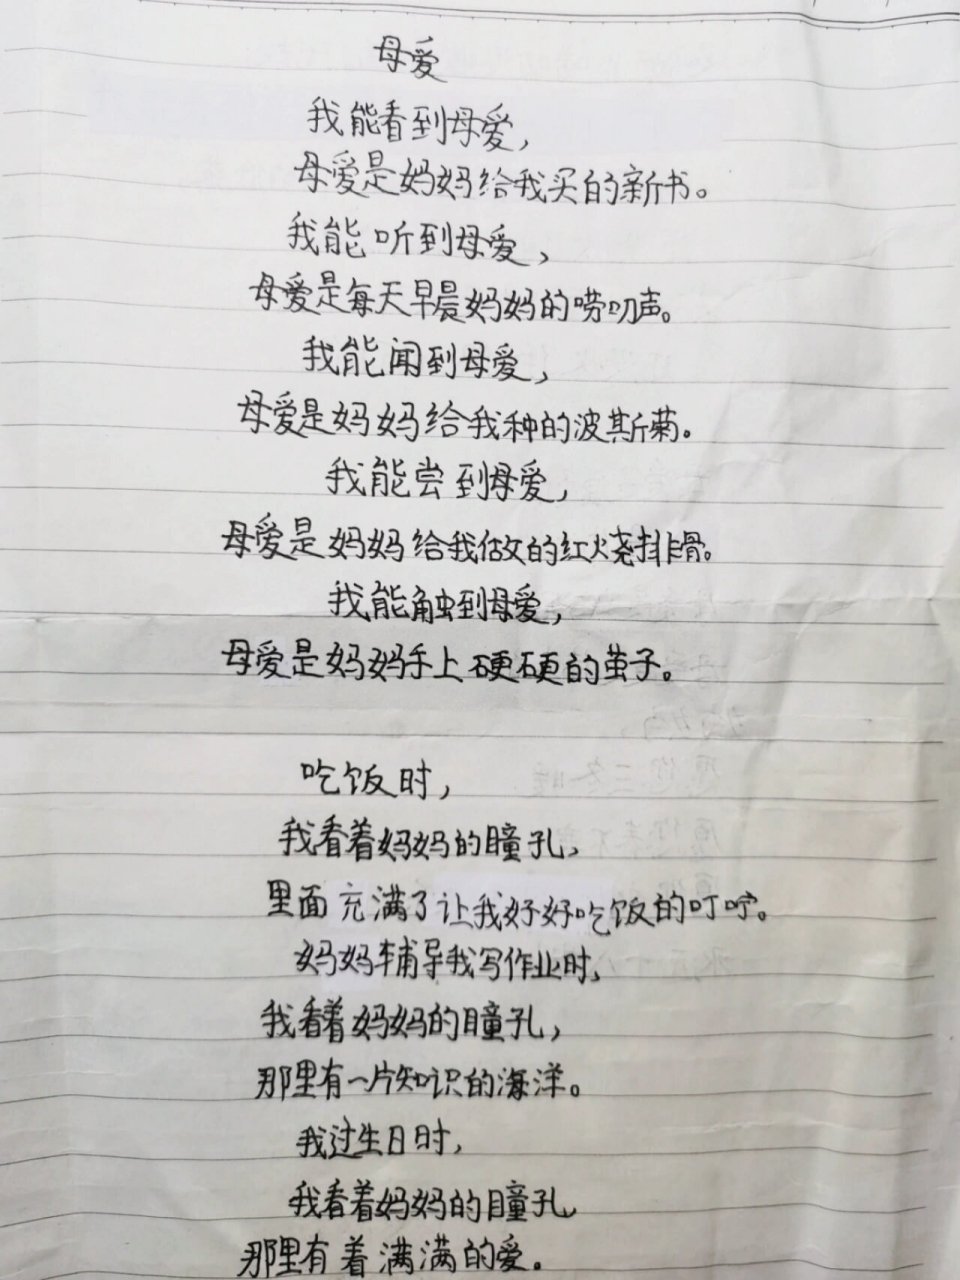 母爱
我能看到母爱，
母爱是妈妈给我买的新书。
我能听到母爱，
母爱是每天早晨妈妈的唠叨声。
我能闻到母爱，
母爱是妈妈给我种的波斯菊。
我能尝到母爱，
母爱是妈妈给我做的红烧排骨。
我能触到母爱，
母爱是妈妈手上硬硬的茧子。
吃饭时，
我看着妈妈的瞳孔，
里面充满了让我好好吃饭的叮咛。
妈妈辅导我写作业时，
我看着妈妈的瞳孔，
那里有一片知识的海洋。
我过生日时，
我看着妈妈的瞳孔，
那里有着满满的爱。